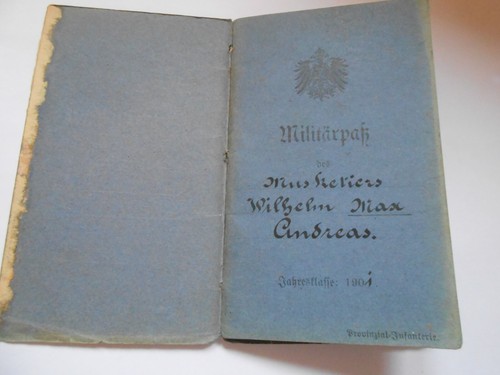 Militärpaß
des
Musketiers
Wilhelm Max
Andreas.
Jahresklasse: 1901
Provinzial-Infanterie.